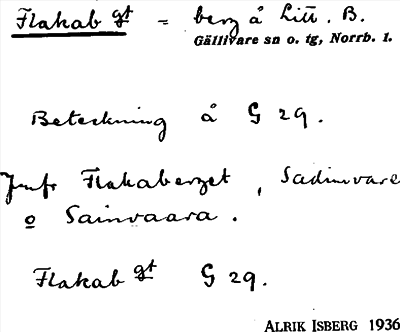 Flakab gt = berg å Litt. B.
Gällivare sn o. tg, Norrb. l.
Beteckning å G 29.
Jmfr Flakaberget, Sadimvare
o Sainvaara.
Flakab gt G 29.
ALRIK ISBERG 1936